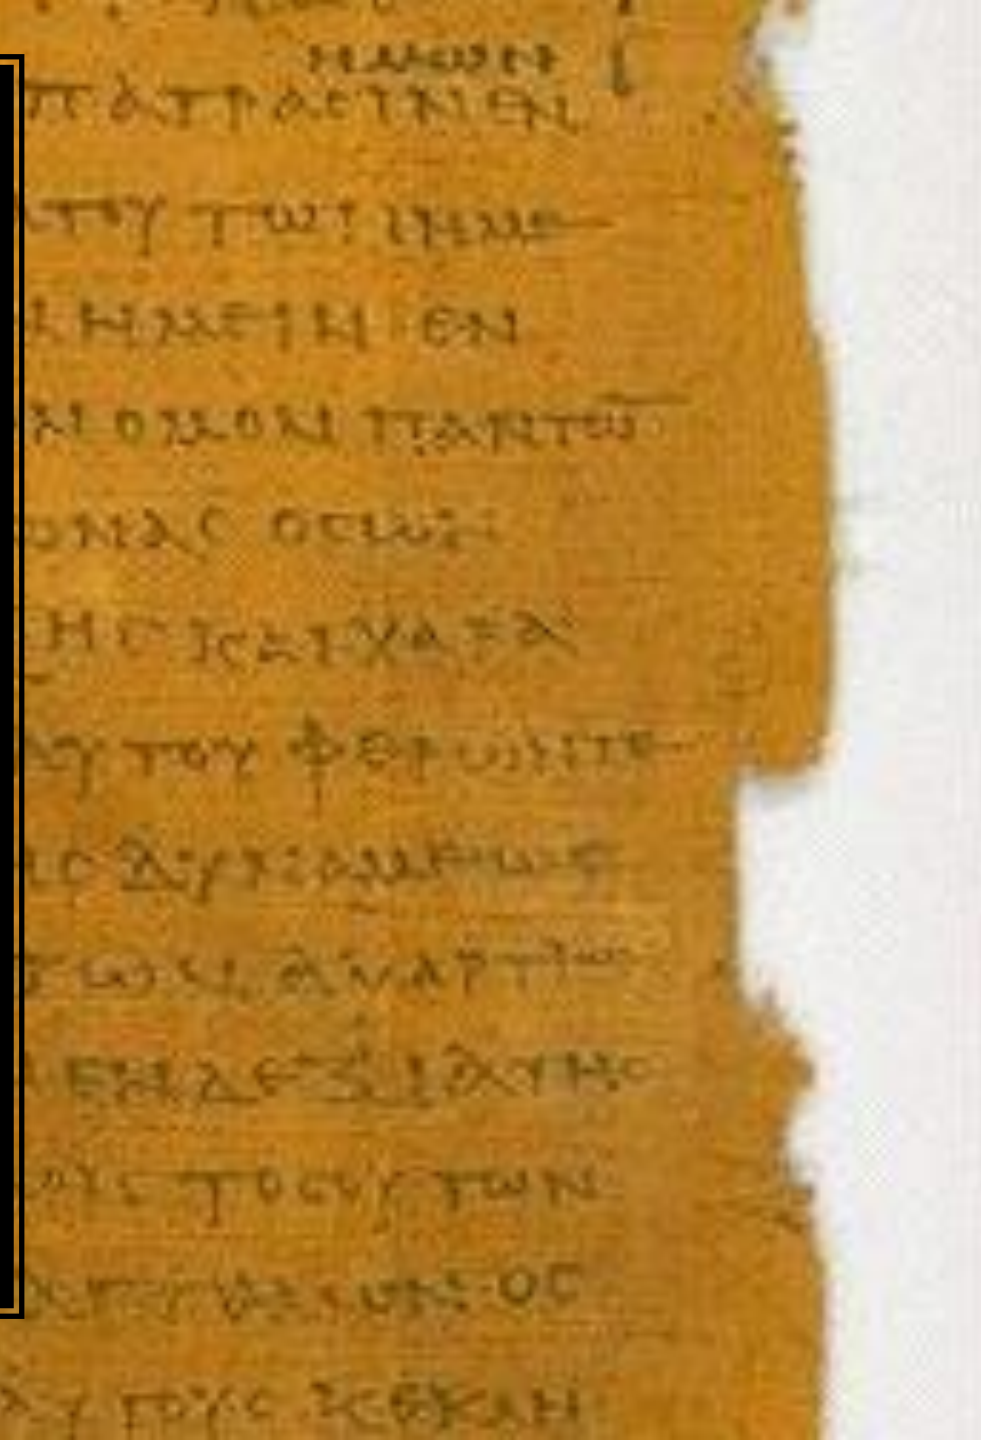 ημων
πατρασιν εν
του των ημε
ημειν εν
νομον παντω̅
ωνας ος ων
ης και χαρα
του φερων τε
ς δυναμεως
των αμαρτιω̅
εν δεξια της
τοσουτων
αγγελων ος
αυτους κεκλη